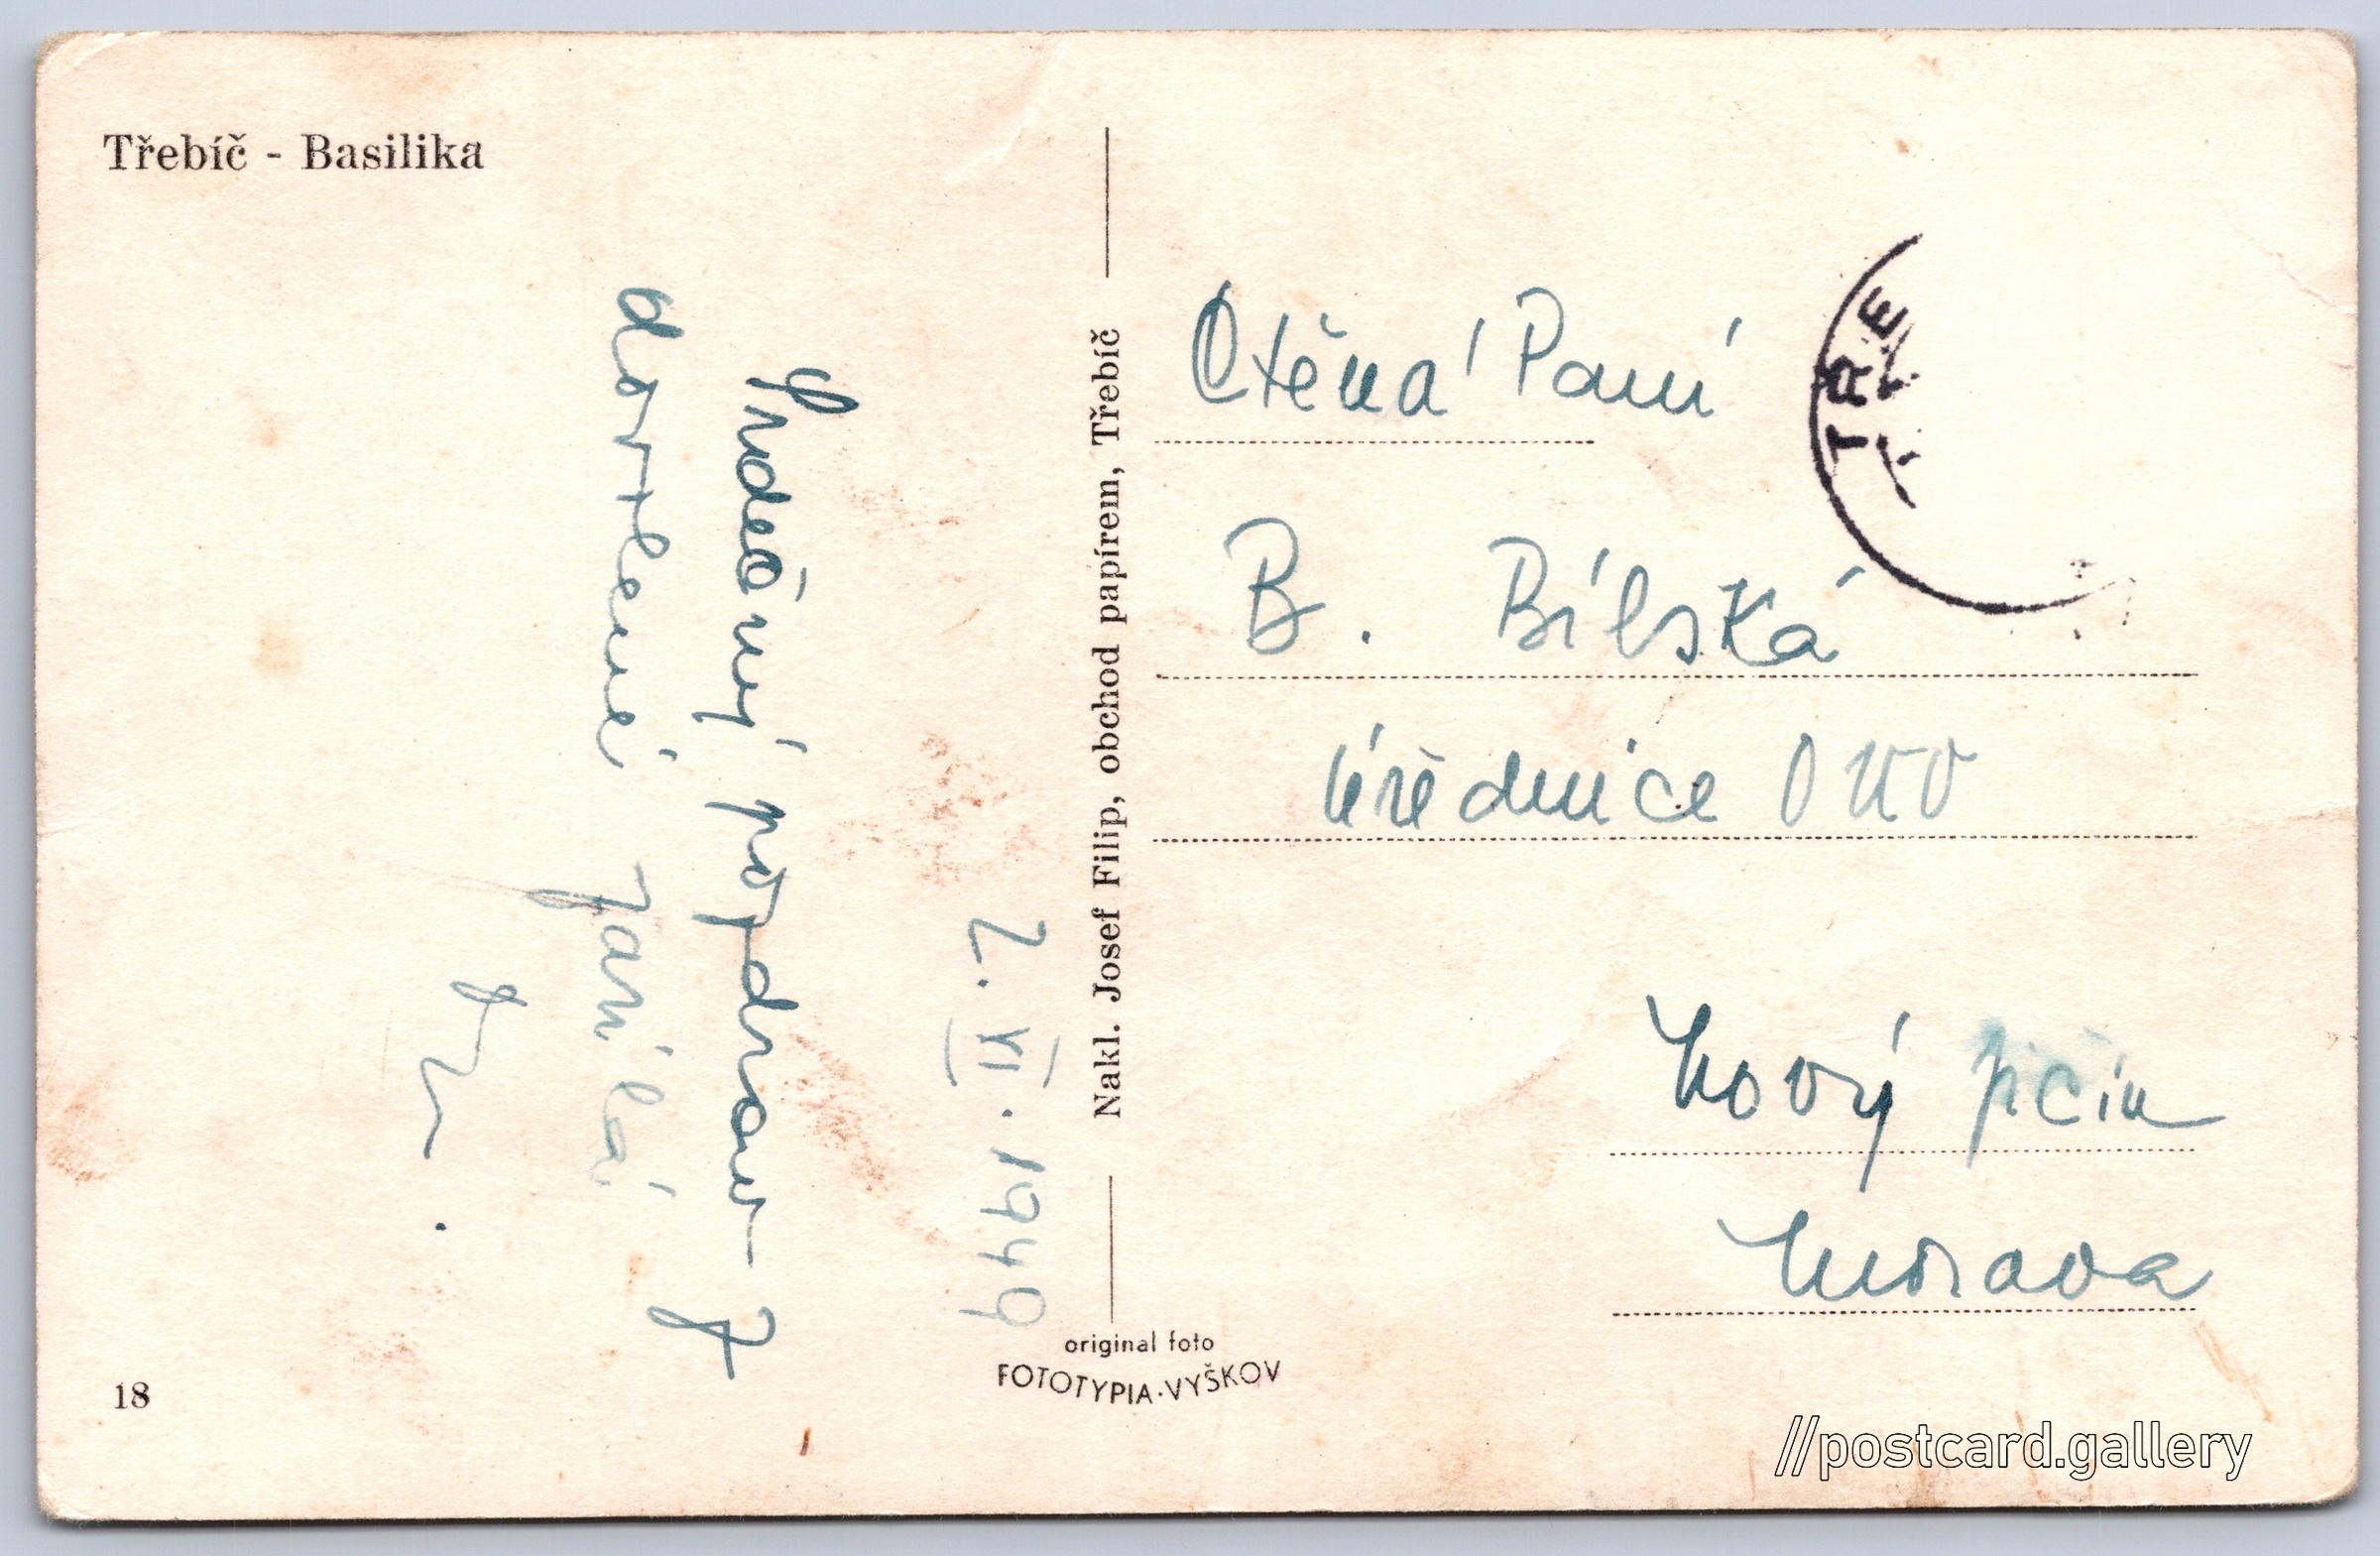 Třebíč - Basilika
2. VI. 1949
Srdečný pozdrav z
dovolené
18
Nakl. Josef Filip, obchod papírem, Třebíč
original foto
FOTOTYPIA·VYŠKOV
Ctěná Paní
B. Bílská
úřednice
Nový Jičín
Morava
TŘE
//postcard.gallery